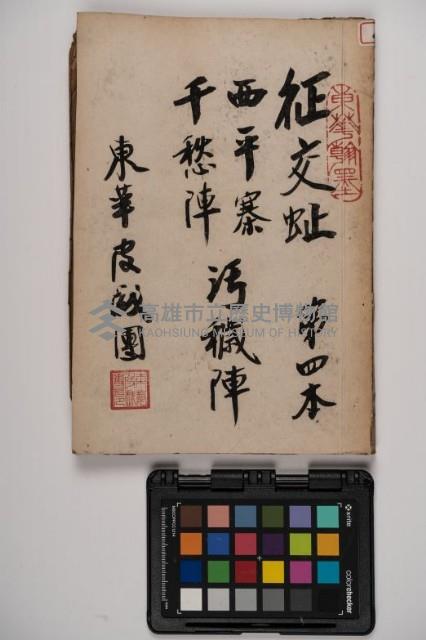 征交趾 第四本
西平寨 污穢陣
千愁陣
東華皮戲團
東華翰墨
高雄市立歷史博物館
KAOHSIUNG MUSEUM OF HISTORY
x-rite
colorchecker